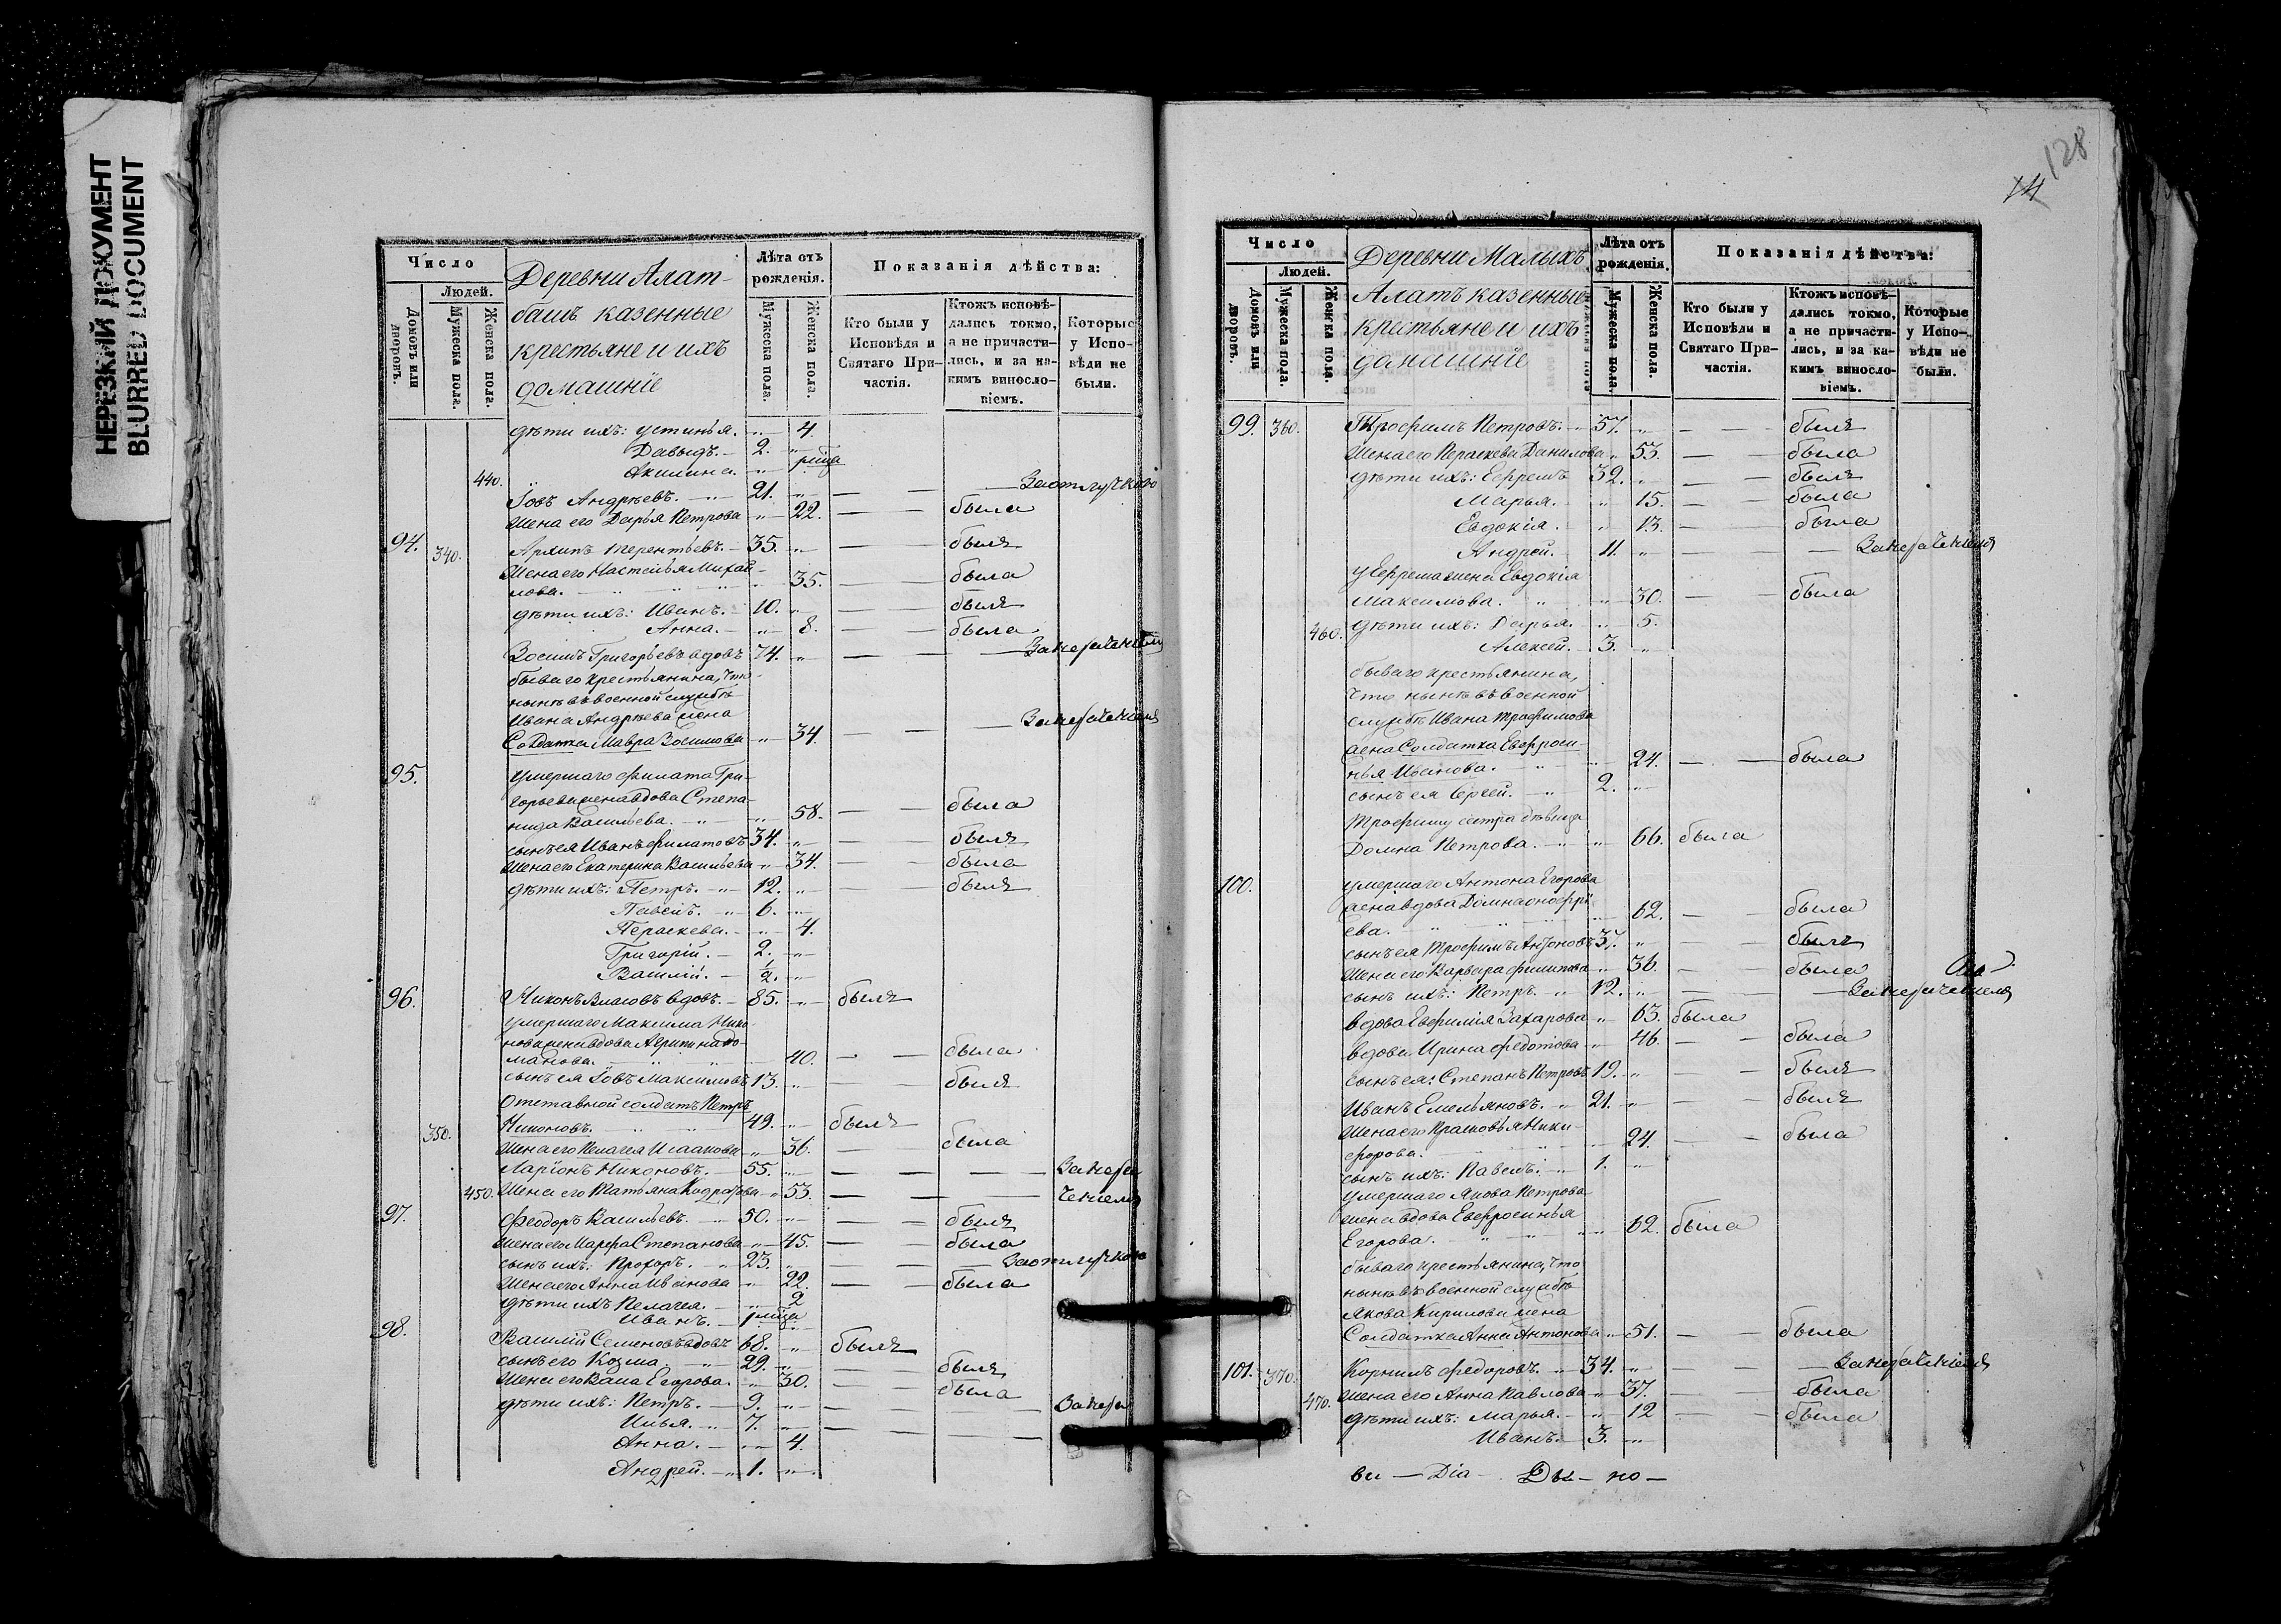 НЕРЕЗКИЙ ДОКУМЕНТ
BLURRED DOCUMENT
Число
Людей.
Домовъ или дворовъ.
Мужеска пола.
Женска пола.
Деревни Алат-
башъ казенные
крестьяне и ихъ
домашніе
Лѣта отъ рожденія.
Мужеска пола.
Женска пола.
Показанія дѣйства:
Кто были у Исповѣди и Святаго Причастія.
Ктожъ исповѣ-
дались токмо,
а не причасти-
лись, и за ка-
кимъ виносло-
віемъ.
Которые
у Испо-
вѣди не
были.
дѣти ихъ: Устинья. 4.
Давыдъ. 2.
440. Акилина.
Іовъ Андреевъ. 21. За отлучкою
Жена его Дарья Петрова 22. была
94. 340. Архипъ Терентьевъ. 35. былъ
Жена его Настасья Михай-
лова. 35. была
дѣти ихъ: Иванъ. 10. былъ
Анна. 8. была
Зосимъ Григорьевъ вдовъ 74. За нераченіемъ
бываго крестьянина, что
нынѣ въ военной службѣ
Ивана Андреева жена
Солдатка Мавра Зосимова 34. За нераченіемъ
95. умершаго Филата Гри-
горьева жена вдова Степа-
нида Васильева. 58. была
сынъ ея Иванъ Филатовъ 34. былъ
Жена его Екатерина Васильева 34. была
дѣти ихъ: Петръ. 12. былъ
6.
Параскева. 4.
Григорій. 2.
Василій. 1/2.
96. Никонъ Власовъ вдовъ. 85. былъ
умершаго Максима Нико-
нова жена вдова Агрипина Ро-
манова. 40. была
сынъ ея Іовъ Максимовъ 13. былъ
Отставной солдатъ Петръ
350. Никоновъ. 49. былъ
Жена его Пелагея Исаакова 36. была
Ларіонъ Никоновъ. 55. За нера-
450. Жена его Татьяна Кодратова 53. ченіемъ
97. Феодоръ Васильевъ. 50. былъ
Жена его Марфа Степанова 45. была
сынъ ихъ: Прохоръ. 23. За отлучкою
Жена его Анна Иванова 22. была
дѣти ихъ Пелагея. 2
Иванъ.
98. Василій Семеновъ вдовъ 68. былъ
сынъ его Козма. 29. былъ
Жена его Егорова. 30. была
дѣти ихъ: Петръ. 9. За нера
Илья. 7.
Анна. 4.
Андрей. 1.
128
14
Число
Людей.
Домовъ или дворовъ.
Мужеска пола.
Женска пола.
Деревни Малыхъ
Алатъ казенные
крестьяне и ихъ
домашніе
Лѣта отъ рожденія.
Мужеска пола.
Женска пола.
Показанія дѣйства:
Кто были у
Исповѣди и
Святаго При-
частія.
Ктожъ исповѣ-
дались токмо,
а не причасти-
лись, и за ка-
кимъ виносло-
віемъ.
Которые
у Испо-
вѣди не
были.
99. 360. Трофимъ Петровъ. 57. былъ
Жена его Параскева Данилова 53. была
дѣти ихъ: Ефремъ 32. былъ
Марья. 15. была
Евдокія. 13. была
Андрей. 11. За нераченіемъ
у Ефрема жена Евдокія
Максимова. 30. была
460. дѣти ихъ: Дарья. 5.
Алексей. 3.
бываго крестьянина,
что нынѣ въ военной
службѣ Ивана Трофимова
жена Солдатка Евфроси-
нья Иванова. 24. была
сынъ ея Сергей. 2.
Трофиму сестра дѣвица
Домна Петрова. 66. была
100. умершаго Антона Егорова
жена вдова Домна Онофрі-
ева. 62. была
сынъ ея Трофимъ Антоновъ 37. былъ
Жена его Варвара Филипова 36. была
сынъ ихъ: Петръ. 12. За нераченіемъ
вдова Евфимія Захарова 63. была
вдова Ирина Федотова 46. была
сынъ ея: Степанъ Петровъ 19. былъ
Иванъ Емельяновъ. 21. былъ
Жена его Прасковья Ники-
форова. 24. была
сынъ ихъ: Павелъ. 1.
умершаго Якова Петрова
жена вдова Евфросинья
Егорова. 62. была
бываго крестьянина, что
нынѣ въ военной службѣ
Якова Кирилова жена
Солдатка Анна Антонова 51. была
101. 370. Корнилъ Федоровъ. 34. За нераченіемъ
470. Жена его Анна Павлова 37. была
дѣти ихъ: Марья. 12 была
Иванъ. 3.
ви — Dіа — — но —